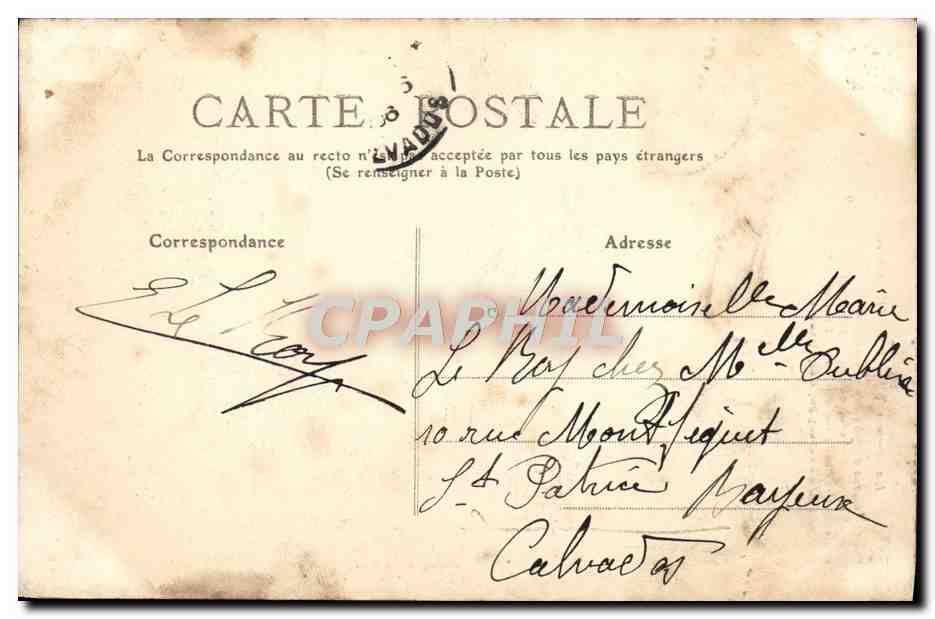 CARTE POSTALE
La Correspondance au recto n'est pas acceptée par tous les pays étrangers
(Se renseigner à la Poste)
LVADOS
Correspondance
E Le Roy
Adresse
Mademoiselle Marie
Le Roy chez Melle
10 rue Mont
St Patrice Bayeux
Calvados
CPAPHIL